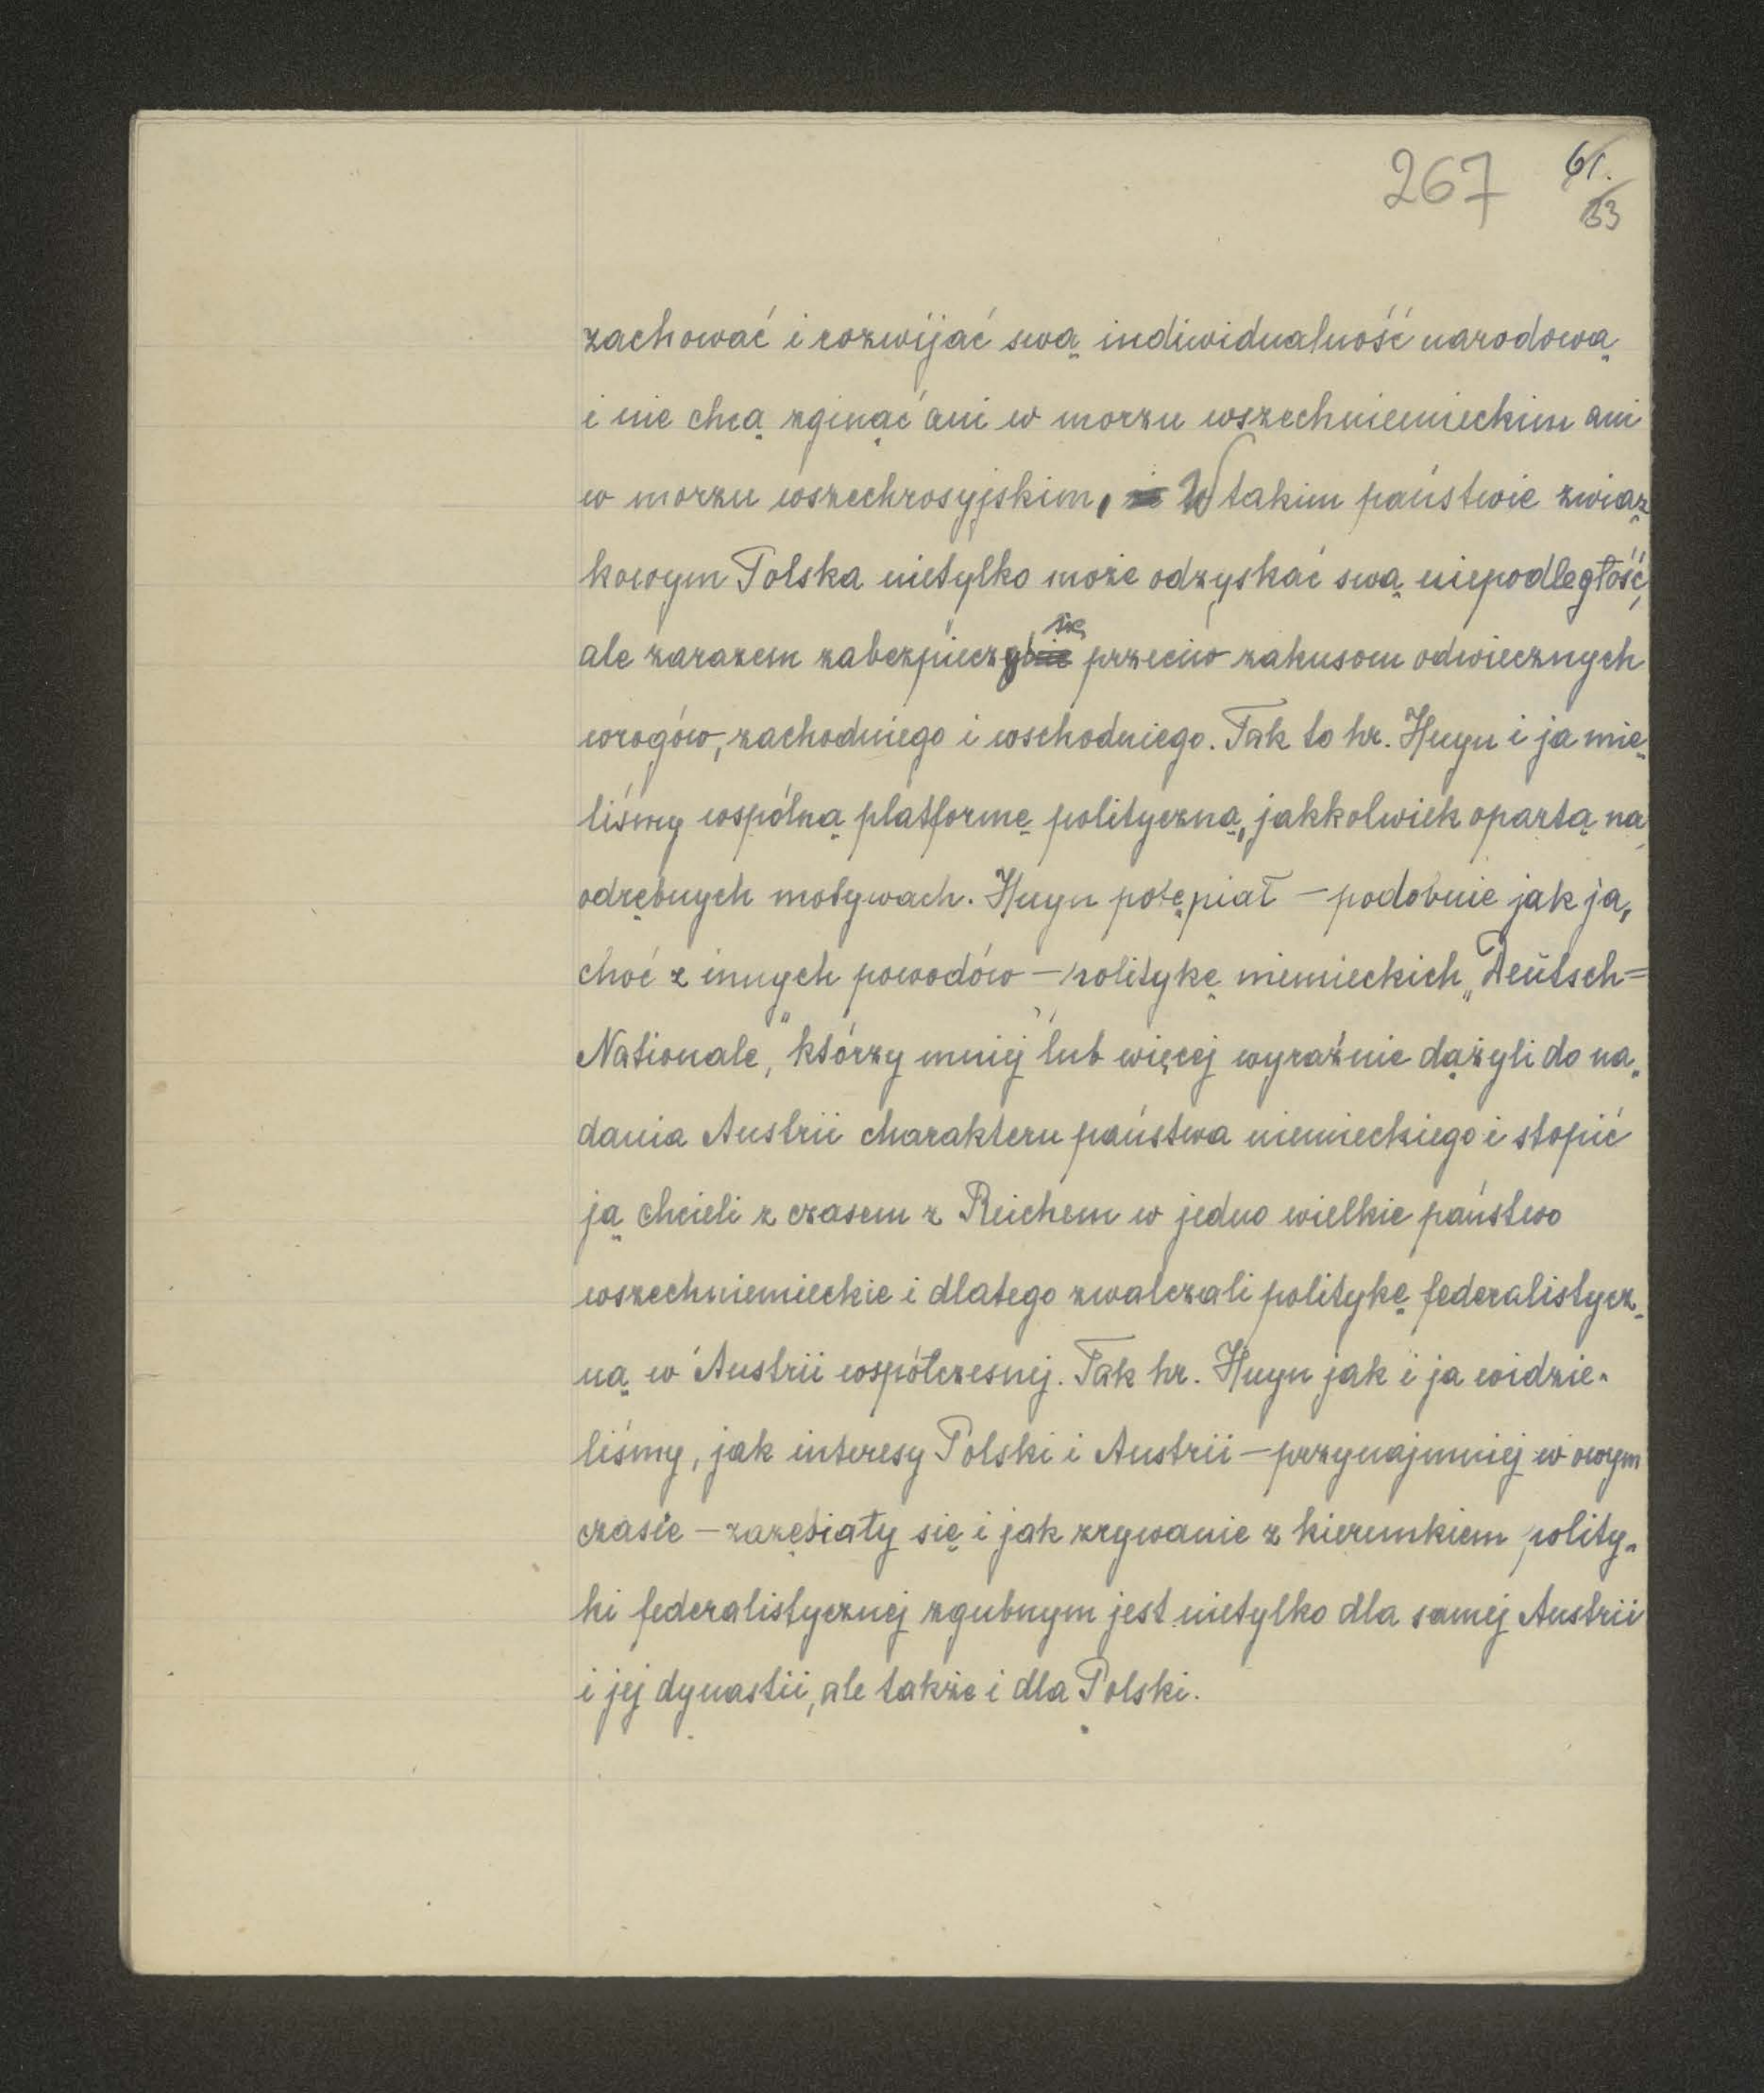 267 61.
33
zachować i rozwijać swą indiwidualność narodową
i nie chcą zginąć ani w morzu wszechniemieckim ani
w morzu wszechrosyjskim, W takim państwie związ
kowym Polska nietylko może odzyskać swą niepodległość,
ale zarazem zabezpieczyć się przeciw zakusom odwiecznych
wrogów, zachodniego i wschodniego. Tak to hr. Huyn i ja mie-
liśmy wspólną platformę polityczną, jakkolwiek opartą na
odrębnych motywach. Huyn potępiał – podobnie jak ja,
choć z innych powodów – politykę niemieckich „Deutsch=
Nationale", którzy mniej lub więcej wyraźnie dążyli do na-
dania Austrii charakteru państwa niemieckiego i stopić
ją chcieli z czasem z Reichem w jedno wielkie państwo
wszechniemieckie i dlatego zwalczali politykę federalistycz-
ną w Austrii współczesnej. Tak hr. Huyn jak i ja widzie-
liśmy, jak interesy Polski i Austrii – przynajmniej w owym
czasie – zazębiały się i jak zrywanie z kierunkiem polity-
ki federalistycznej zgubnym jest nietylko dla samej Austrii
i jej dynastii, ale także i dla Polski.